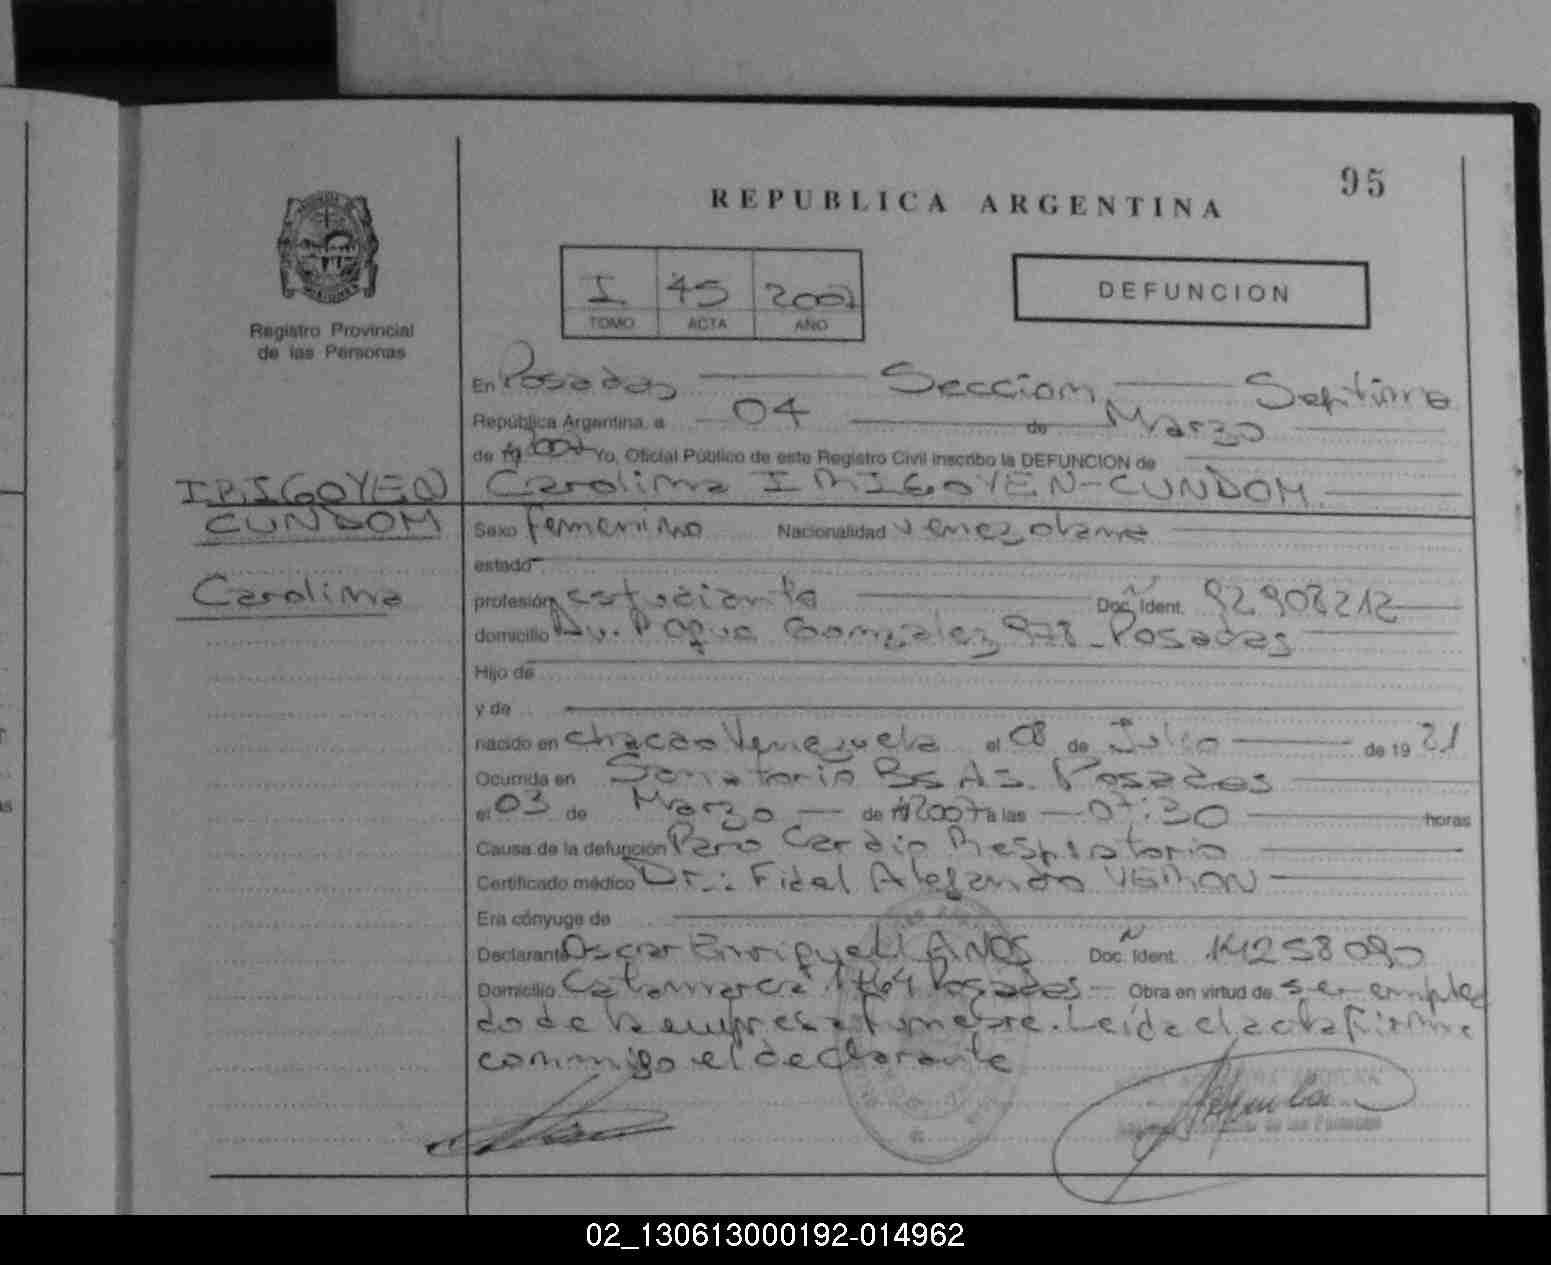 95
REPUBLICA ARGENTINA
I 45 2007
TOMO ACTA AÑO
DEFUNCION
Registro Provincial
de las Personas
En Posadas Seccion Septima
República Argentina, a 04 de Marzo
de 19 2007 Yo, Oficial Público de este Registro Civil inscribo la DEFUNCION de
IRIGOYEN Carolina IRIGOYEN-CUNDOM
CUNDOM Sexo femenino Nacionalidad venezolana
estado
Carolina profesión estudiante Doc. Ident. 92908212
domicilio Av. Roque Gonzalez 978 - Posadas
Hijo de
y de
nacido en Chacao Venezuela el 08 de Julio de 19 81
Ocurrida en Sanatorio Bs As. Posadas
el 03 de Marzo de 2007 a las 07:30 horas
Causa de la defunción Paro Cardio Respiratorio
Certificado médico Dr.: Fidel Alejandro
Era cónyuge de
Declarante Oscar Enrique Doc. Ident. 14258090
Domicilio Catamarca 1764 Posades - Obra en virtud de ser emplea
do de la empresa funebre. Leida el acta firma
conmigo el declarante
02_130613000192-014962